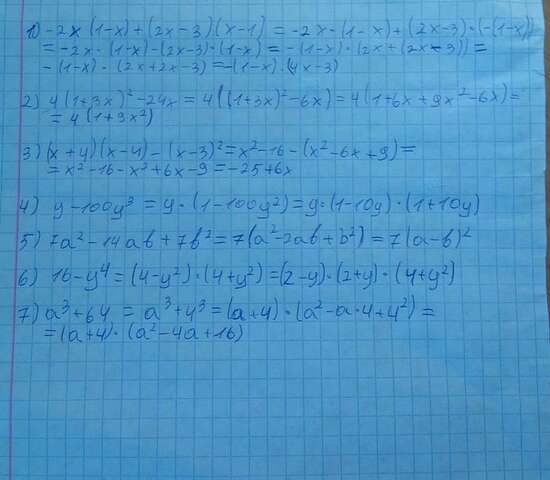 1) -2x (1-x) + (2x-3)(x-1) = -2x·(1-x) + (2x-3)·(-(1-x))
= -2x·(1-x)-(2x-3)·(1-x) = -(1-x)·(2x+(2x-3)) =
-(1-x)·(2x+2x-3) = -(1-x)·(4x-3)
2) 4(1+3x)²-24x = 4((1+3x)²-6x) = 4(1+6x+9x²-6x) =
= 4(1+9x²)
3) (x+4)(x-4)-(x-3)² = x²-16-(x²-6x+9) =
= x²-16-x²+6x-9 = -25+6x
4) y-100y³ = y·(1-100y²) = y·(1-10y)·(1+10y)
5) 7a²-14ab+7b² = 7(a²-2ab+b²) = 7(a-b)²
6) 16-y⁴ = (4-y²)·(4+y²) = (2-y)·(2+y)·(4+y²)
7) a³+64 = a³+4³ = (a+4)·(a²-a·4+4²) =
= (a+4)·(a²-4a+16)